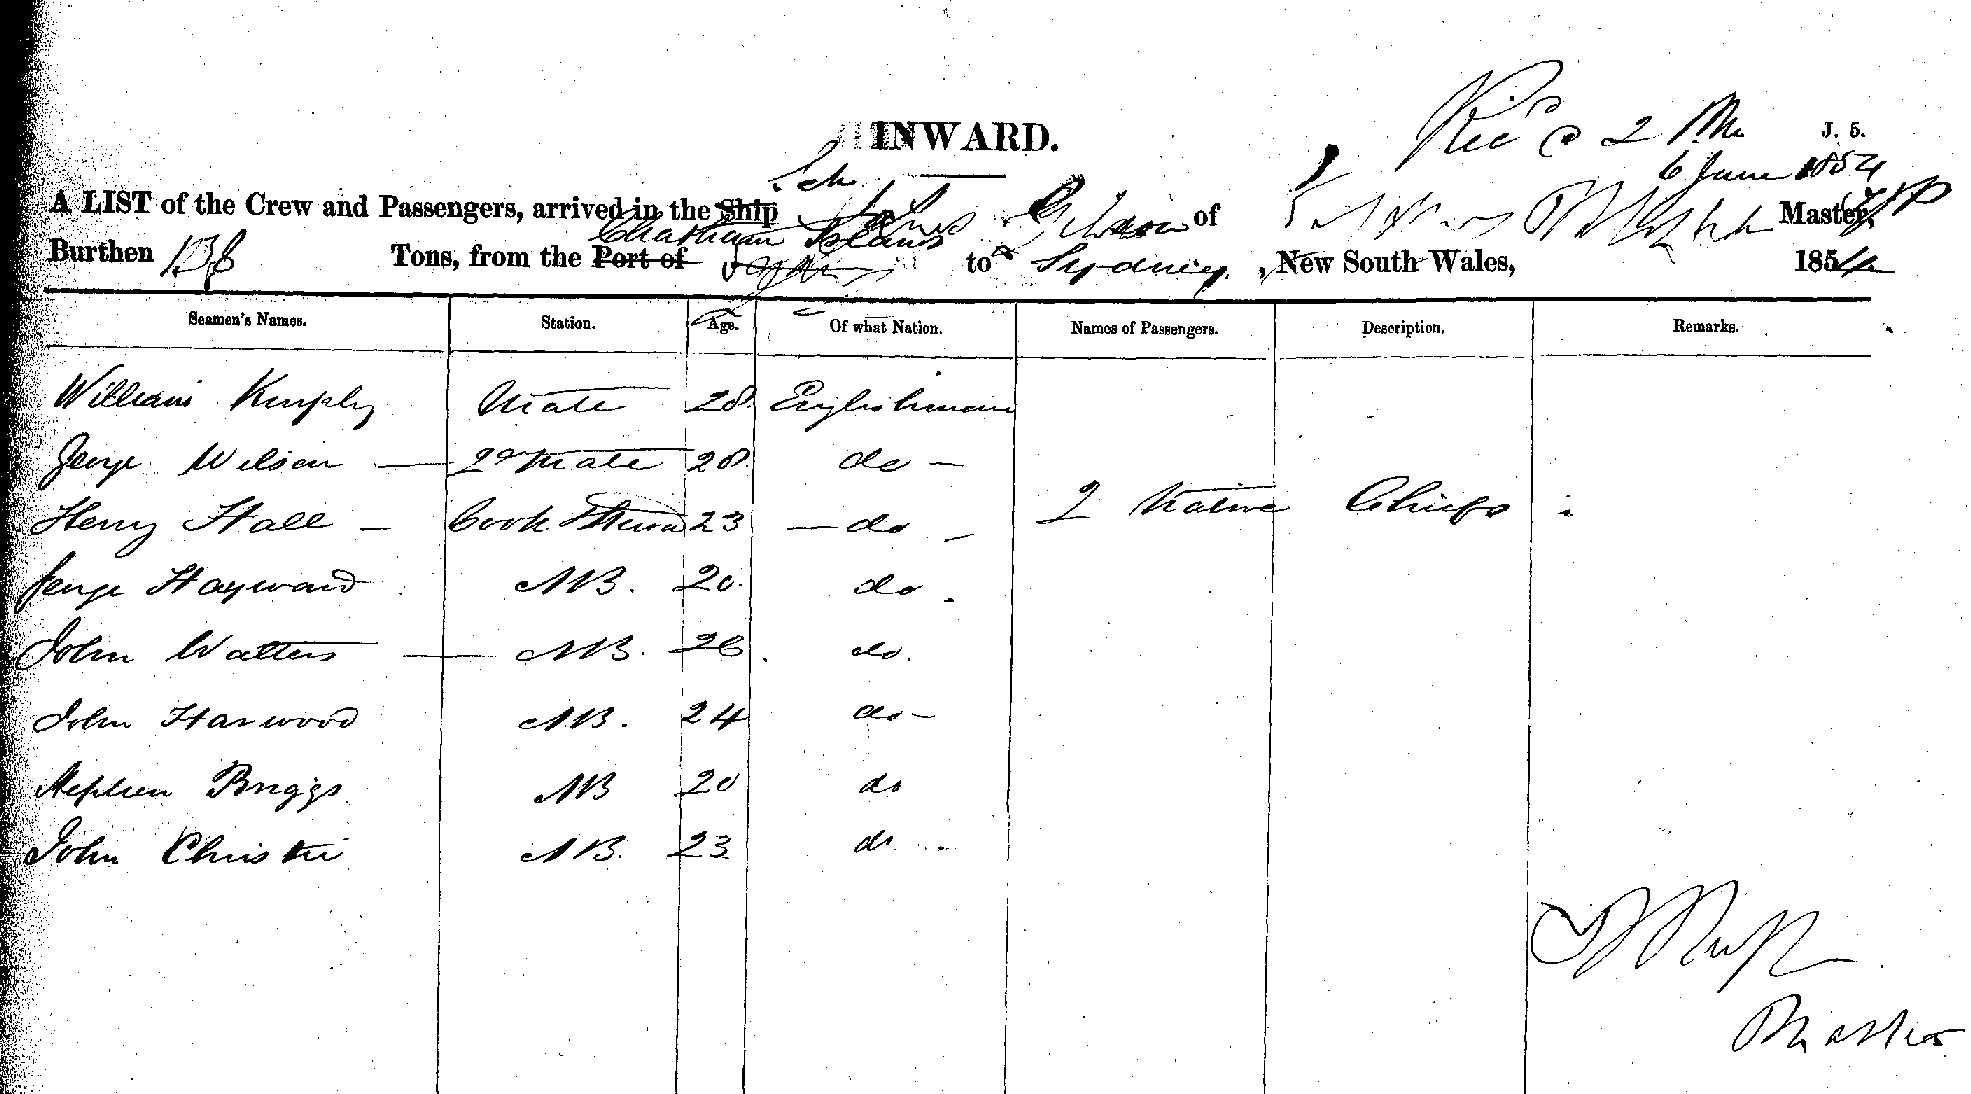 INWARD.
Rec'd 2 PM
J. 5.
6 June 1854
Sch
A LIST of the Crew and Passengers, arrived in the Ship of Master,
Chatham Islands
Burthen Tons, from the Port of to Sydney, New South Wales, 1854
Seamen's Names. Station. Age. Of what Nation. Names of Passengers. Description. Remarks.
William Mate 28 Englishman
George Wilson 2d Mate 28 do
Henry Hall Cook 23 do
2 Native Chiefs
George Hayward AB. 20 do
John Watters AB. 26 do
John Harwood AB. 24 do
Stephen Briggs AB 20 do
John Christie AB. 23 do
Master